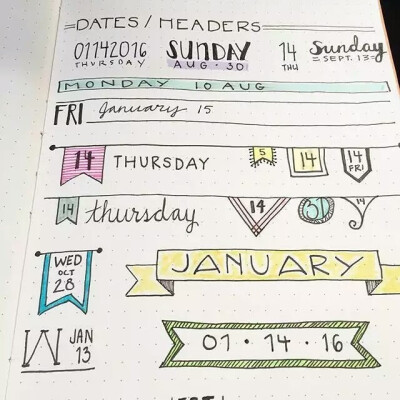 DATES / HEADERS
01142016 SUNDAY 14 Sunday
THURSDAY AUG · 30 THU SEPT. 13
MONDAY 10 AUG
FRI January 15
14 THURSDAY 5 14 14 FRI
14 thursday 14 31 14
WED OCT 28
JANUARY
W JAN 13
01 · 14 · 16